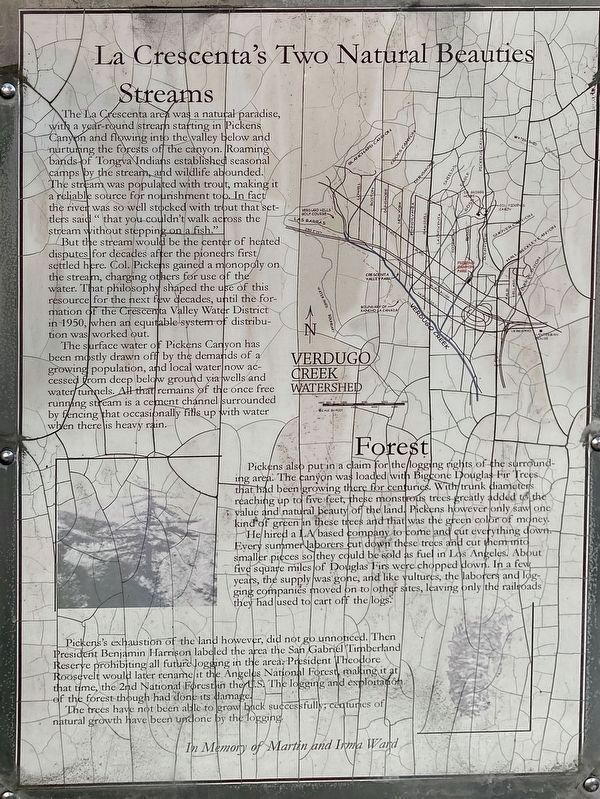 La Crescenta's Two Natural Beauties
Streams
The La Crescenta area was a natural paradise,
with a year-round stream starting in Pickens
Canyon and flowing into the valley below and
nurturing the forests of the canyon. Roaming
bands of Tongva Indians established seasonal
camps by the stream, and wildlife abounded.
The stream was populated with trout, making it
a reliable source for nourishment too. In fact
the river was so well stocked with trout that set-
tlers said " that you couldn't walk across the
stream without stepping on a fish."
But the stream would be the center of heated
disputes for decades after the pioneers first
settled here. Col. Pickens gained a monopoly on
the stream, charging others for use of the
water. That philosophy shaped the use of this
resource for the next few decades, until the for-
mation of the Crescenta Valley Water District
in 1950, when an equitable system of distribu-
tion was worked out.
The surface water of Pickens Canyon has
been mostly drawn off by the demands of a
growing population, and local water now ac-
cessed from deep below ground via wells and
water tunnels. All that remains of the once free
running stream is a cement channel surrounded
by fencing that occasionally fills up with water
when there is heavy rain.
LAS BARRAS
CRESCENTA
VALLEY PARK
BOUNDARY OF
RANCHO LA CANADA
VERDUGO CREEK
N
VERDUGO
CREEK
WATERSHED
Forest
Pickens also put in a claim for the logging rights of the surround-
ing area. The canyon was loaded with Bigcone Douglas Fir Trees
that had been growing there for centuries. With trunk diameters
reaching up to five feet, these monstrous trees greatly added to the
value and natural beauty of the land. Pickens however only saw one
kind of green in these trees and that was the green color of money.
He hired a LA based company to come and cut everything down.
Every summer laborers cut down these trees and cut them into
smaller pieces so they could be sold as fuel in Los Angeles. About
five square miles of Douglas Firs were chopped down. In a few
years, the supply was gone, and like vultures, the laborers and log-
ging companies moved on to other sites, leaving only the railroads
they had used to cart off the logs.
Pickens's exhaustion of the land however, did not go unnoticed. Then
President Benjamin Harrison labeled the area the San Gabriel Timberland
Reserve prohibiting all future logging in the area. President Theodore
Roosevelt would later rename it the Angeles National Forest, making it at
that time, the 2nd National Forest in the U.S. The logging and exploitation
of the forest though had done its damage.
The trees have not been able to grow back successfully; centuries of
natural growth have been undone by the logging.
In Memory of Martin and Irma Ward